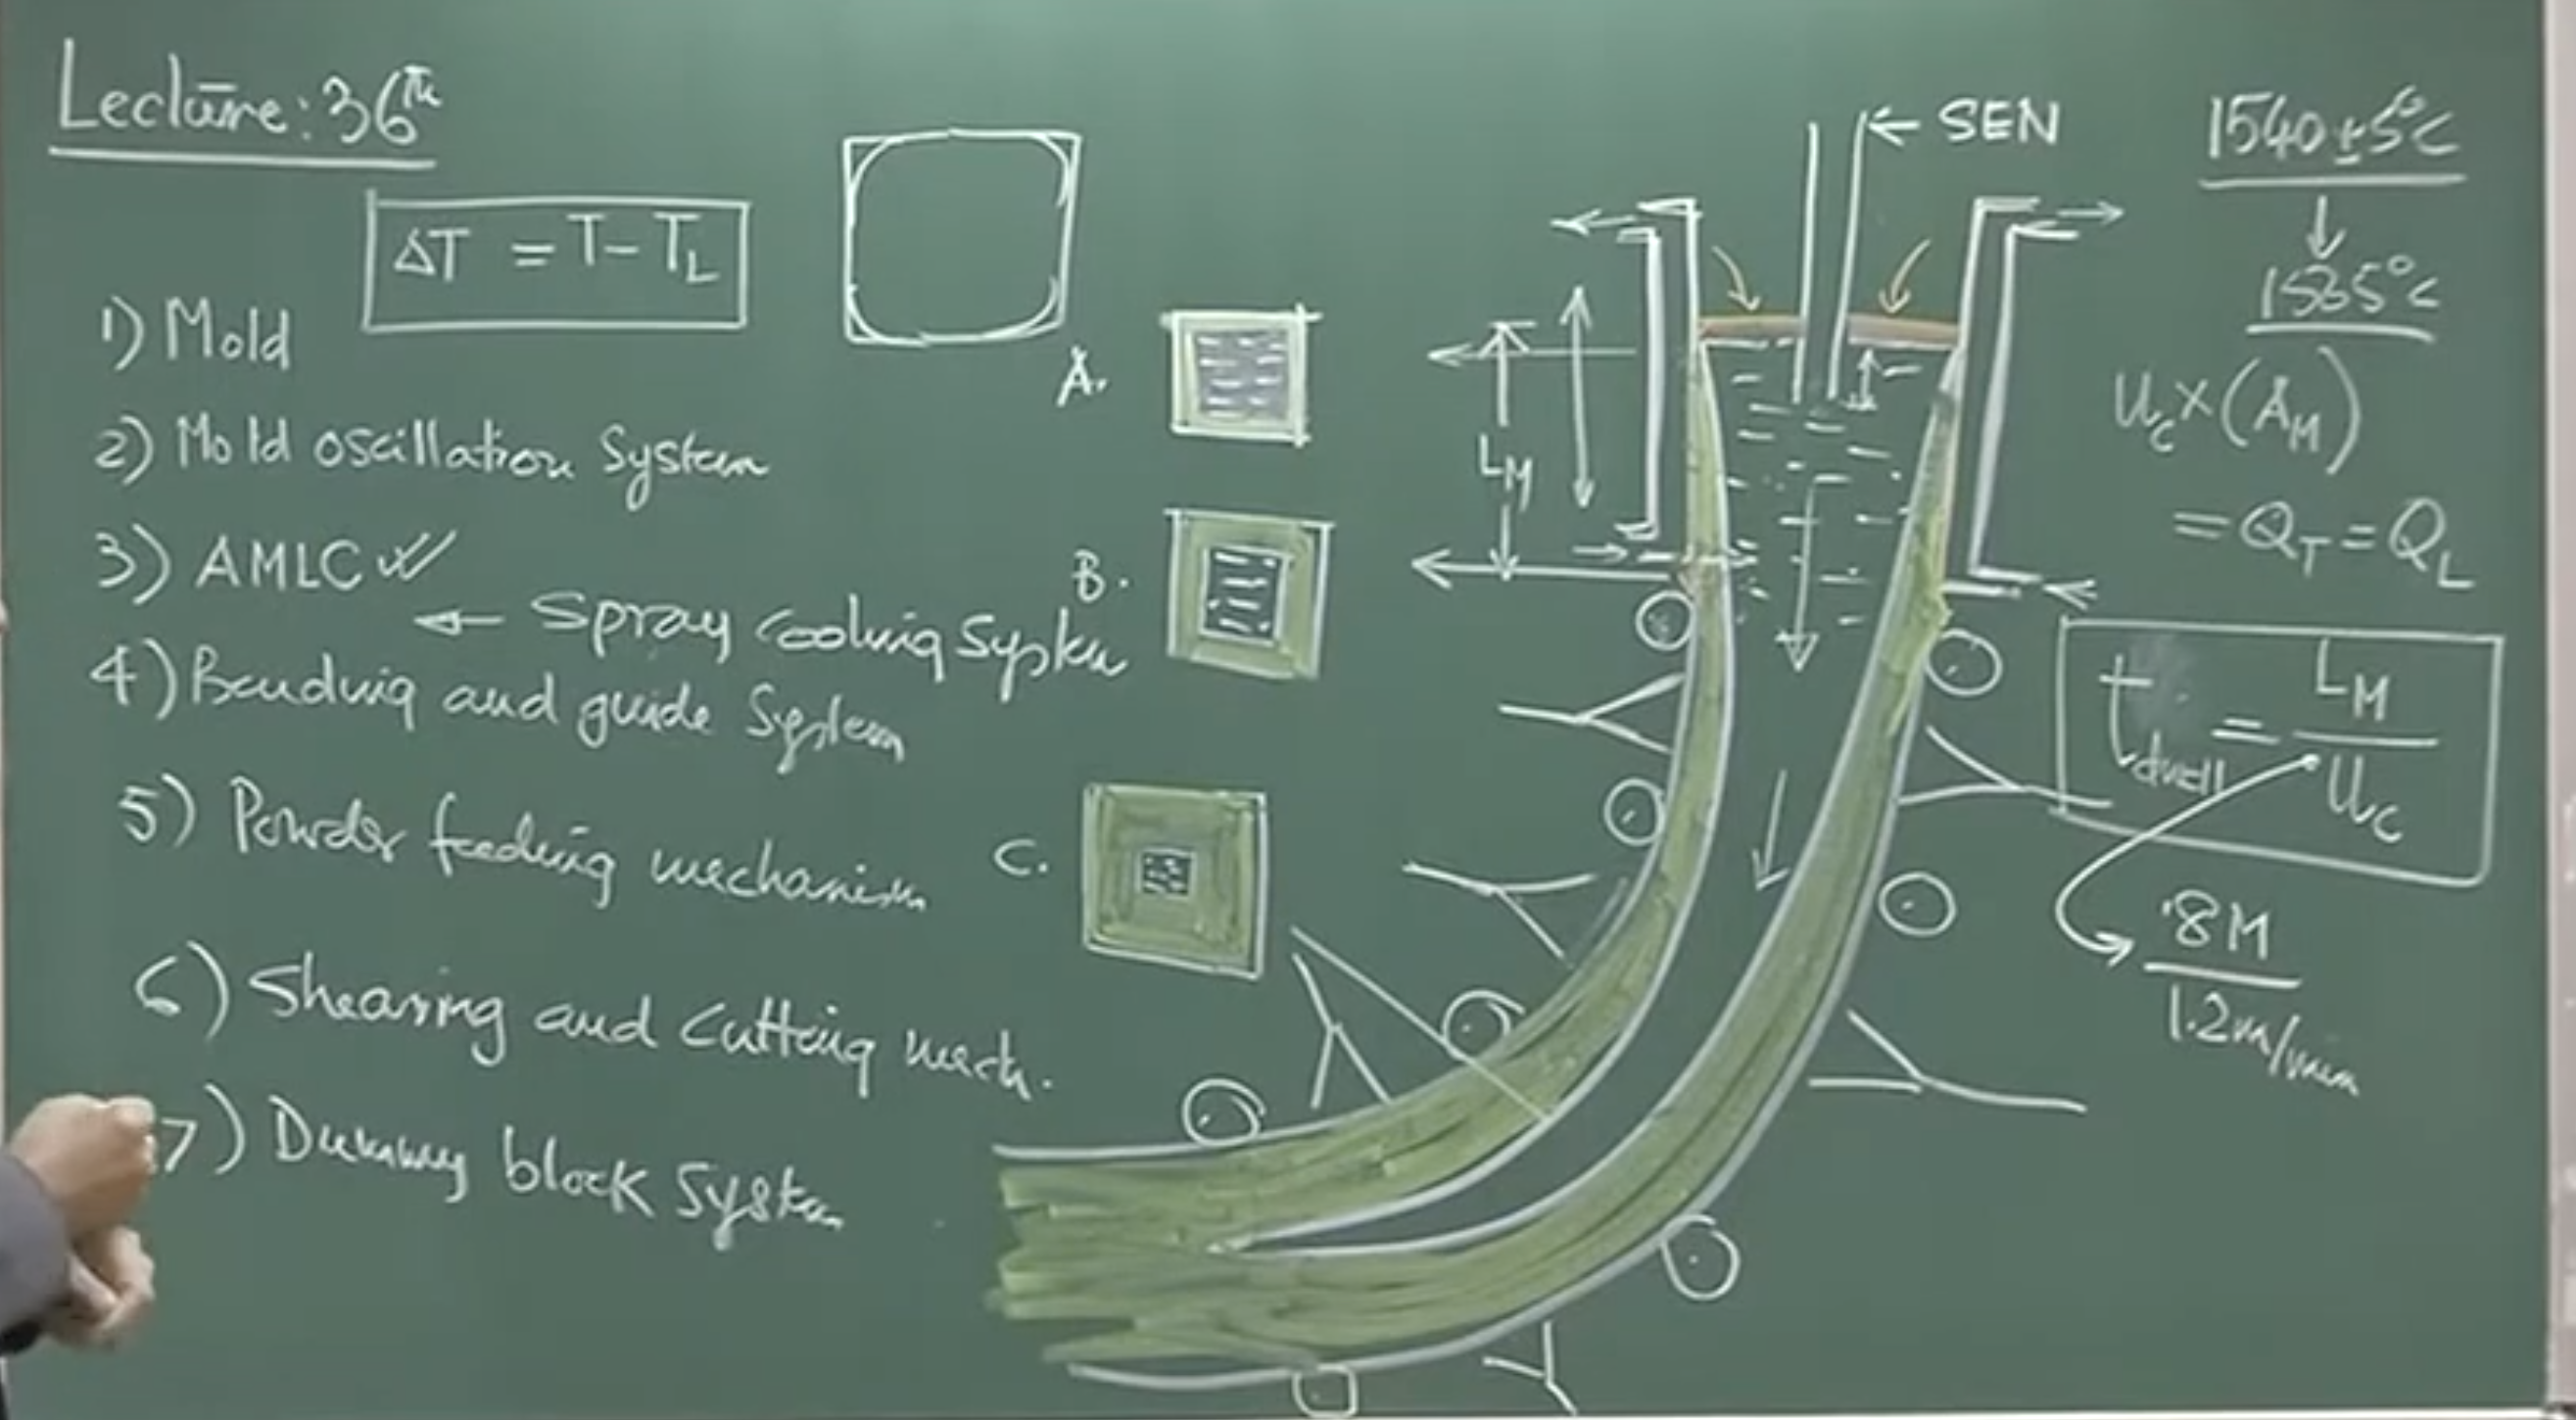 Lecture: 36th
ΔT = T - T_L
1) Mold
2) Mold oscillation System
3) AMLC ✓✓
← Spray Cooling System
4) Bending and guide System
5) Powder feeding mechanism
6) Shearing and Cutting mech.
7) Dummy block System
A.
B.
C.
← SEN
L_M
1540 ± 5°C
↓
1535°C
U_c × (A_M)
= Q_T = Q_L
t_dwell = L_M / U_c
.8M / 1.2m/min